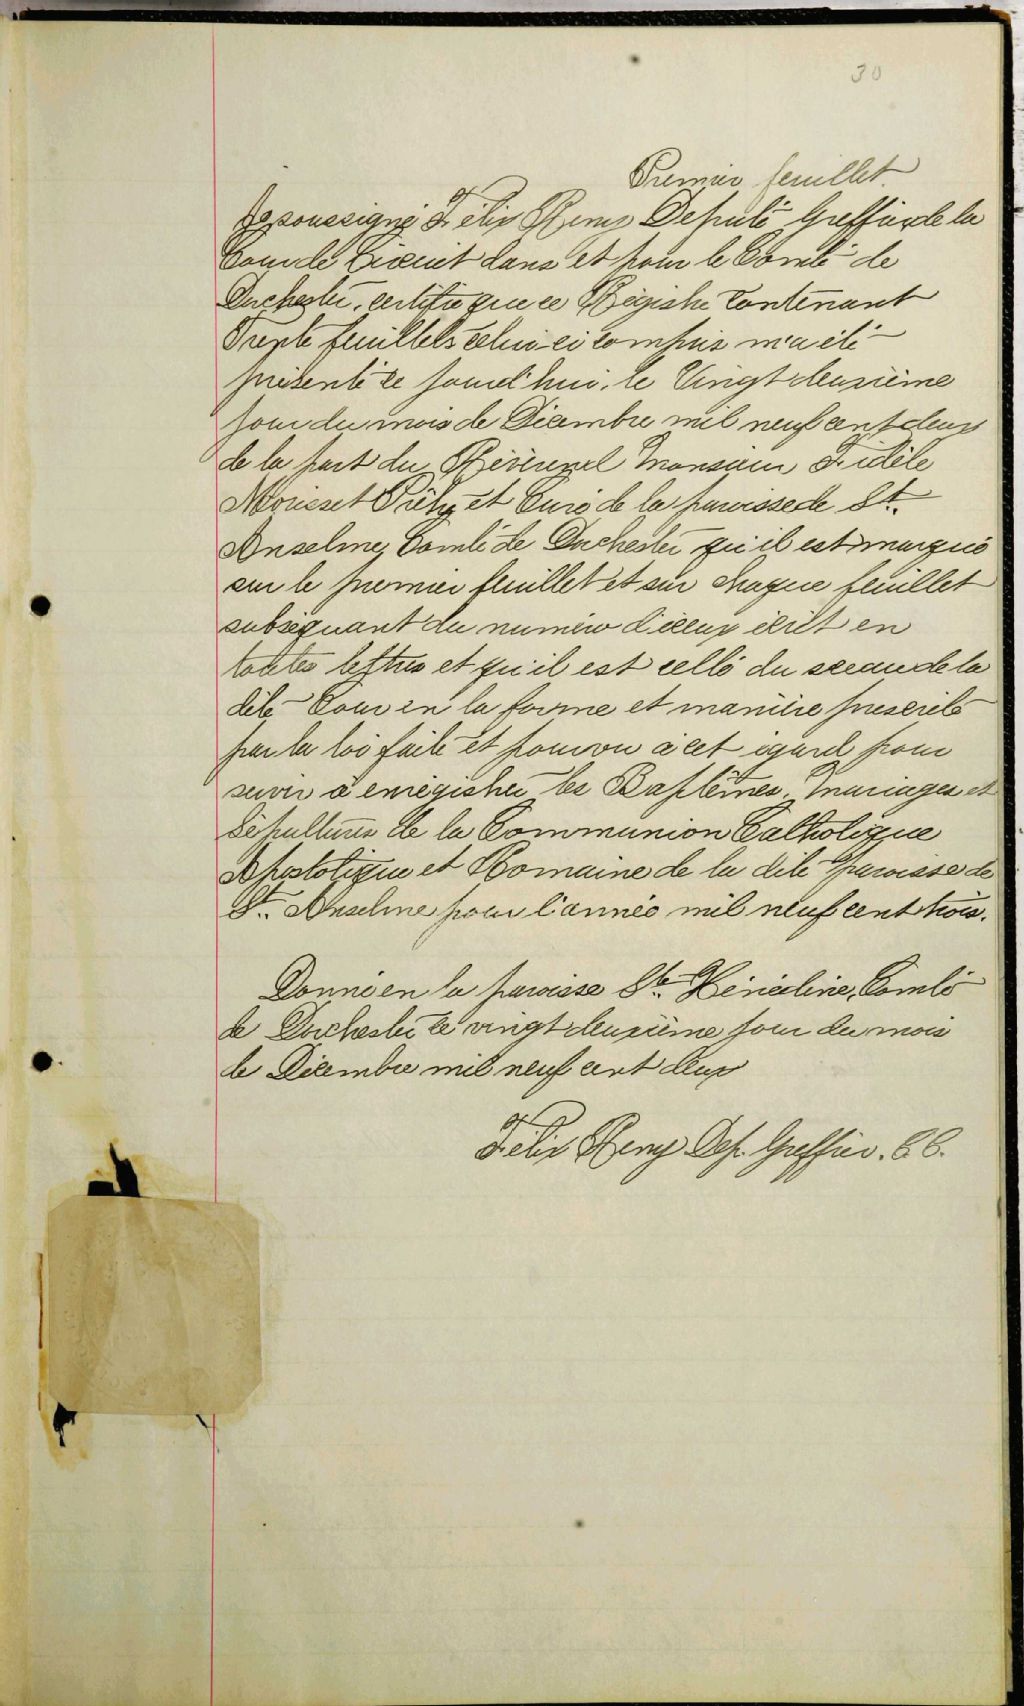 30
Premier feuillet.
Je soussigné Félix Remy Député Greffier de la
Cour de Circuit dans et pour le Comté de
Dorchester, certifie que ce Régistre contenant
Trente feuillets celui-ci compris m'a été
présenté ce jourd'hui, le Vingt deuxième
jour du mois de Décembre mil neuf cent deux
de la part du Révérend Monsieur Fidèle
Morisset Prêtre et Curé de la paroisse de St.
Anselme, Comté de Dorchester qu'il est marqué
sur le premier feuillet et sur chaque feuillet
subséquant du numéro d'iceux écrit en
toutes lettres et qu'il est cellé du sceau de la
dite Cour en la forme et manière prescrite
par la loi faite et pourvu à cet égard pour
servir à enrégistrer les Baptêmes, Mariages et
Sépultures de la Communion Catholique
Apostolique et Romaine de la dite paroisse de
St. Anselme pour l'année mil neuf cent trois.
Donné en la paroisse Ste. Hénédine, Comté
de Dorchester le vingt deuxième jour du mois
de Décembre mil neuf cent deux
Félix Remy Dep. Greffier. C.C.